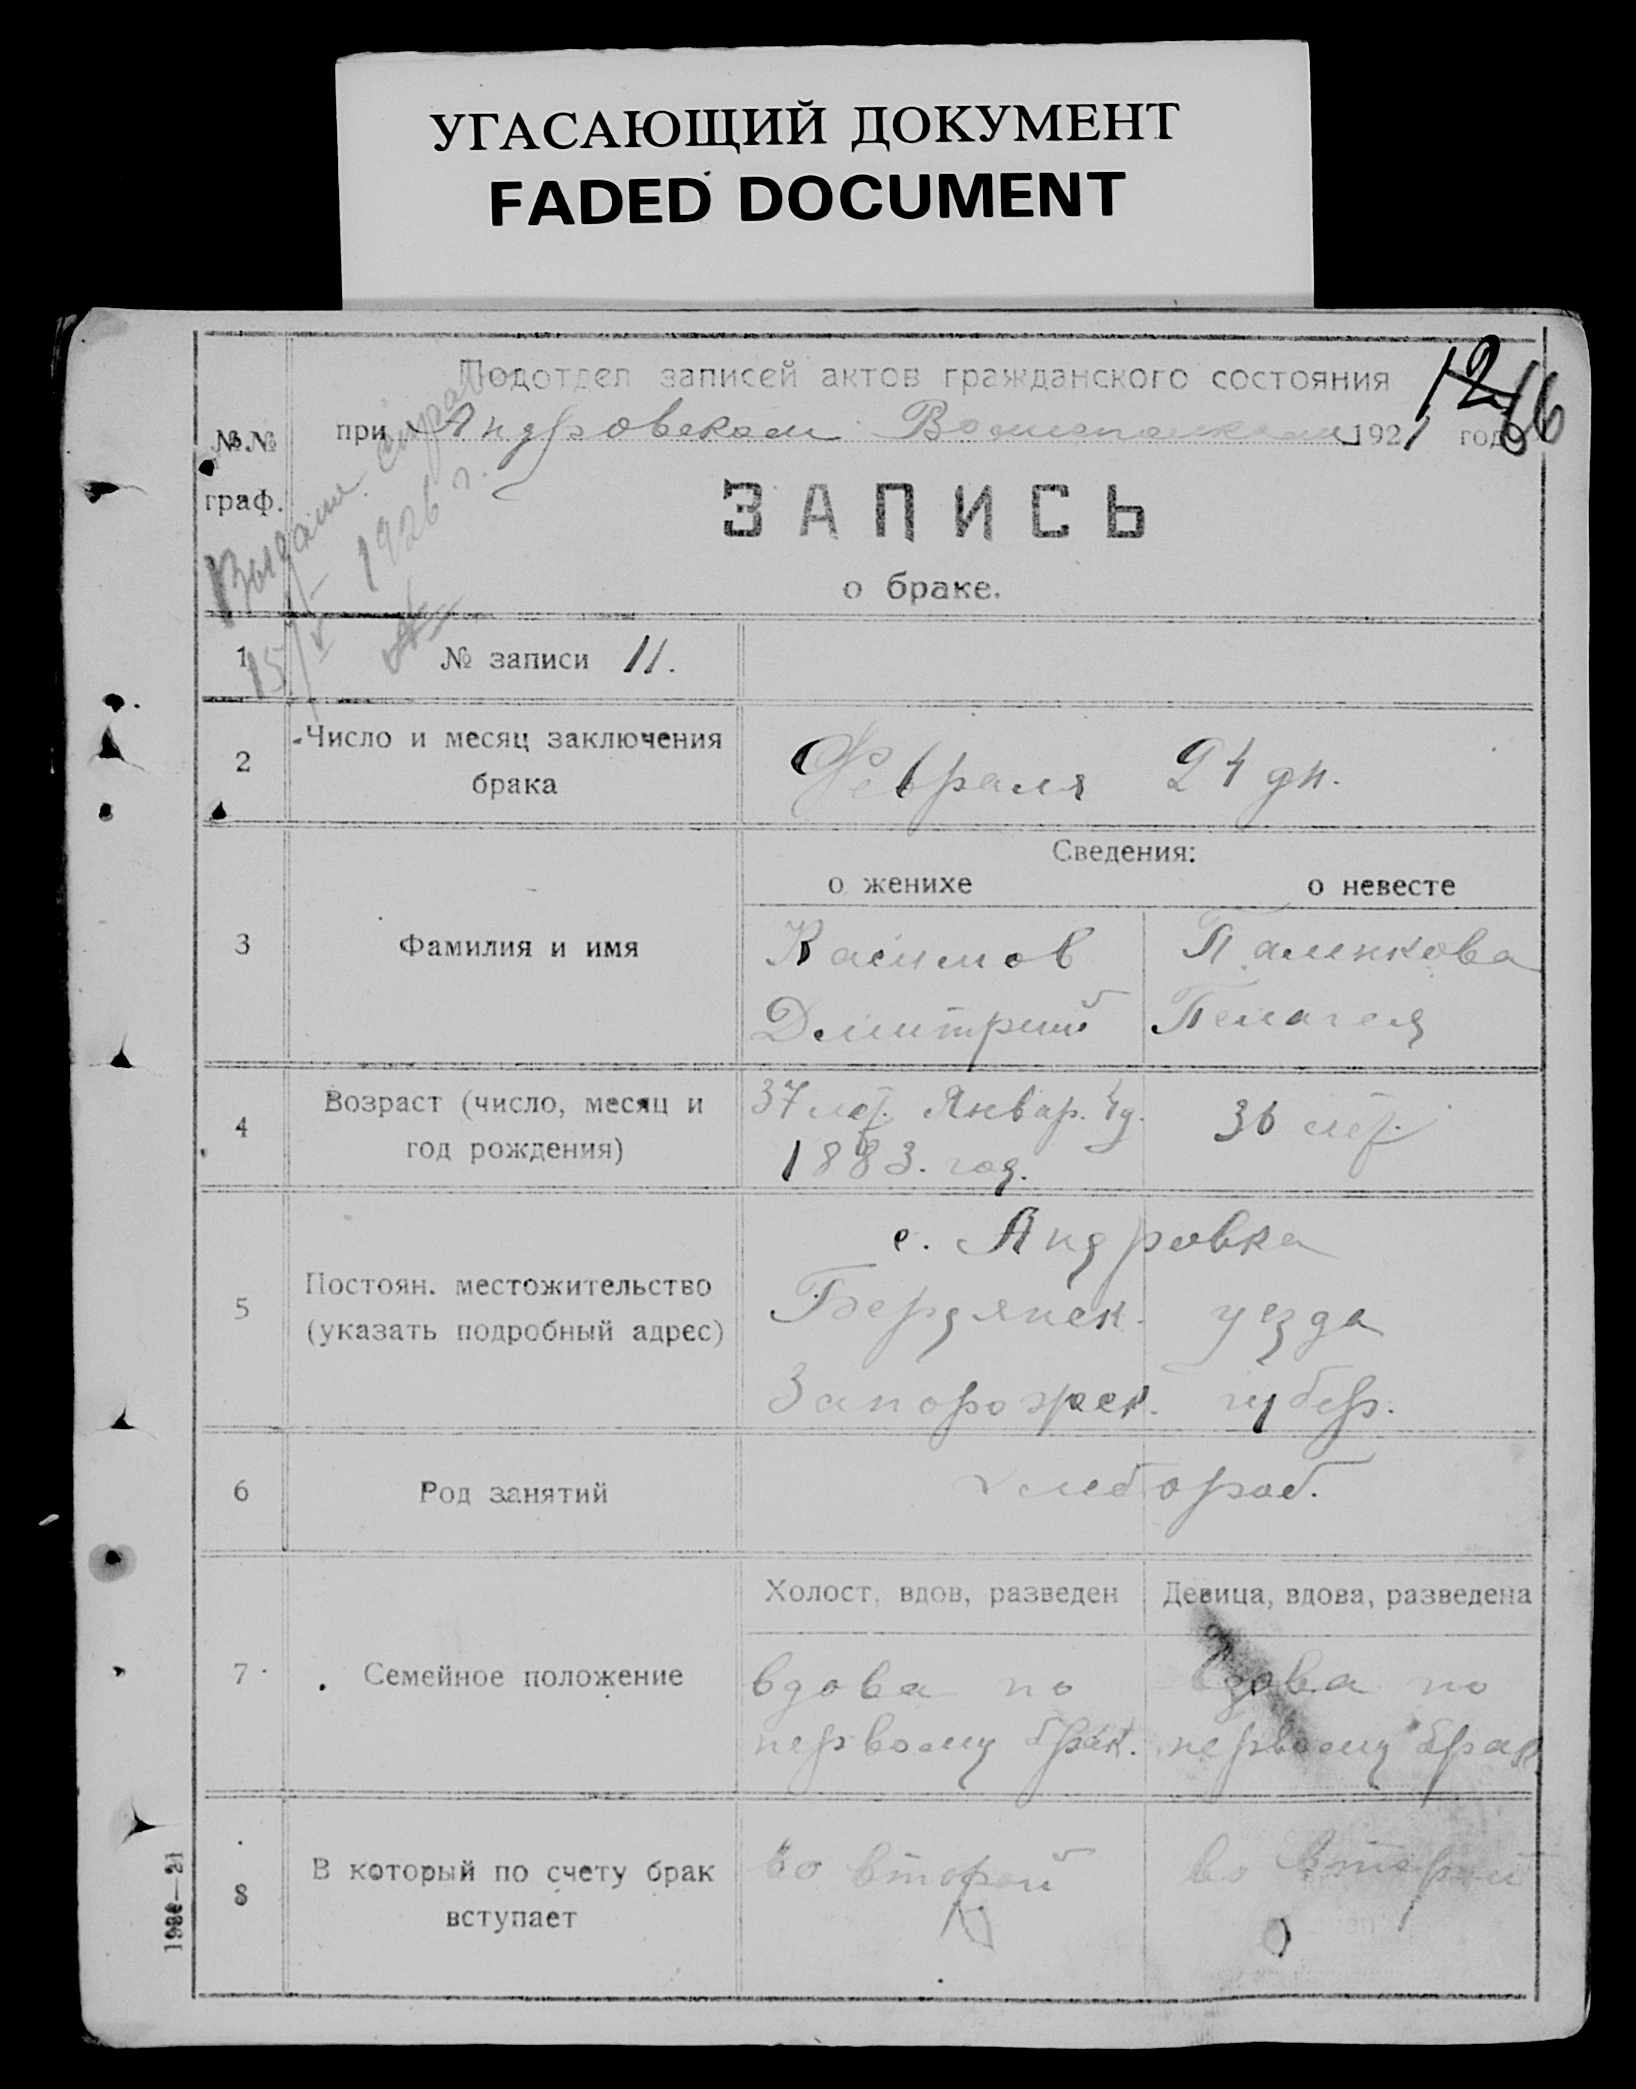 УГАСАЮЩИЙ ДОКУМЕНТ
FADED DOCUMENT
12
16
Подотдел записей актов гражданского состояния
при Андровском 1921 года
№№
граф.
Выдана
15/V 1926 г.
ЗАПИСЬ
о браке.
1 № записи 11.
2 Число и месяц заключения
брака
Февраля 24 дн.
Сведения:
о женихе о невесте
3 Фамилия и имя
Касимов
Дмитрий
Палинкова
Пелагея
4 Возраст (число, месяц и
год рождения)
37 лет. Январ. 4 д.
1883. год.
36 лет.
5 Постоян. местожительство
(указать подробный адрес)
с. Андровка
Бердянск. уезда
Запорожск. губер.
6 Род занятий
хлебороб.
7 Семейное положение
Холост, вдов, разведен
Девица, вдова, разведена
вдова по
первому брак.
вдова по
первому брак
8 В который по счету брак
вступает
во второй
во второй